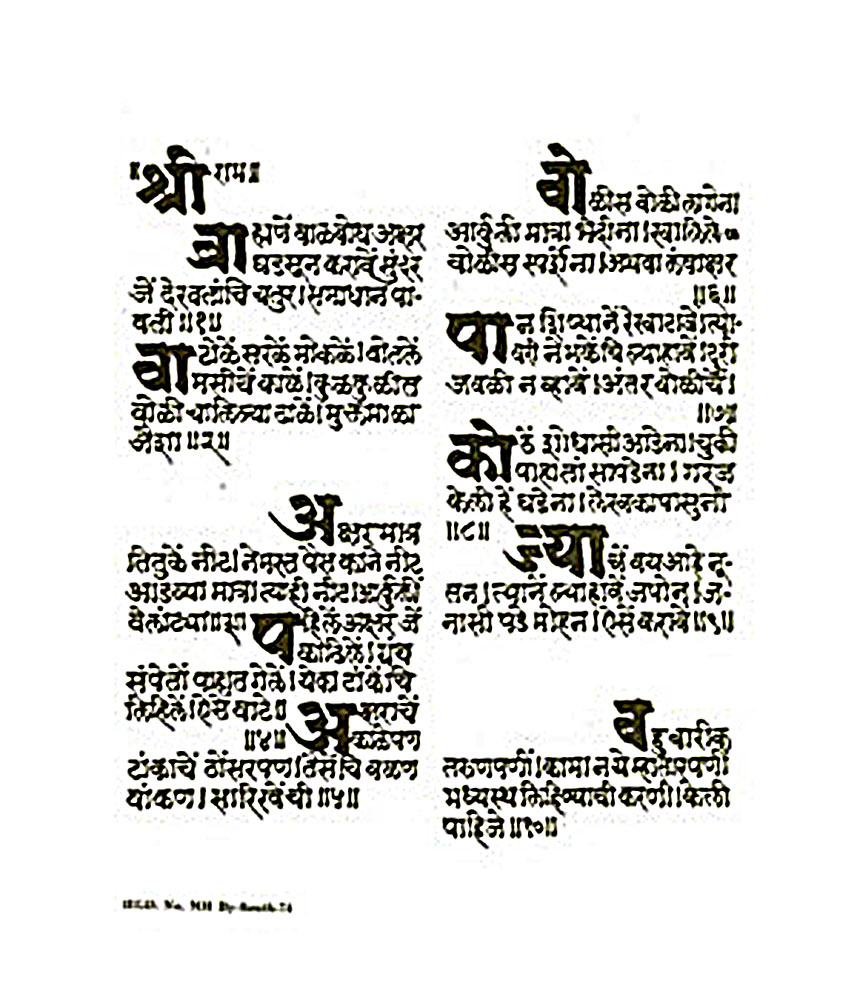 ॥श्री राम॥
ब्राह्मणें बाळबोध अक्षर
घडसून करावें सुंदर
जें देखतांचि चतुर।समाधान पा-
वती॥१॥
वाटोळें सरळें मोकळें।वोतलें
मसीचें काळें।कुळकुळीत
वोळी चालिल्या ढाळें।मुक्तमाळा
जैशा॥२॥
अक्षरमात्र
तितुकें नीट।नेमस्त पैस काने नीट
आडव्या मात्रा त्याही नीट।आर्कुलीं
वेलांट्या॥३॥ पहिलें अक्षर जें
काढिलें।ग्रंथ
संपेतों पाहात गेलें।येका टांकेंचि
लिहिलें।ऐसें वाटे॥ अक्षराचें
॥४॥ काळेपण
टांकाचें ठोंसरपण।तैसेंचि वळण
वांकण।सारिखेंची॥५॥
वोळीस वोळी लागेना
आर्कुली मात्रा भेदीना।खालिले
वोळीस स्पर्शेना।अथवा लंबाक्षर
॥६॥
पान शिष्यानें रेखाटावें।त्या-
वरी नेमकेंचि ल्याहावें।दुरी
जवळी न व्हावें।अंतर वोळीचें।
॥७॥
कोठें शोधासी आडेना।चुकी
पाहातां सापडेना।गरज
केली हें घडेना।लेखकापासुनी
॥८॥ ज्याचें वय आहे नू-
तन।त्यानें ल्याहावें जपोन।ज-
नासी पडे मोहन।ऐसें करावें॥९॥
बहु बारीक
तरुणपणीं।कामा नये म्हातारपणीं
मध्यस्थ लिहिण्याची करणी।केली
पाहिजे॥१०॥